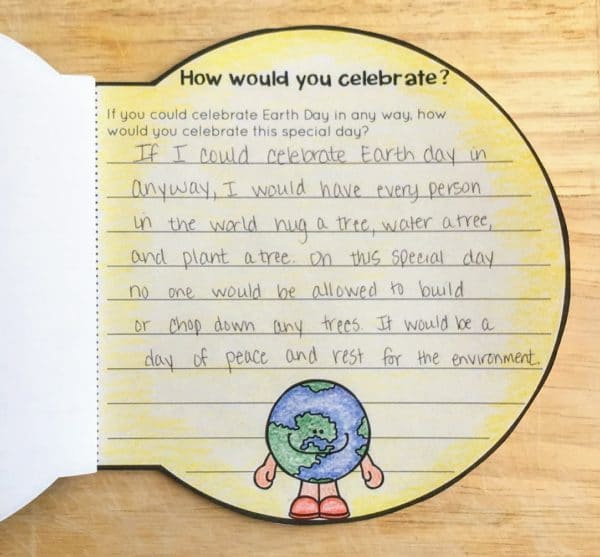 How would you celebrate?
If you could celebrate Earth Day in any way, how
would you celebrate this special day?
If I could celebrate Earth day in
anyway, I would have every person
in the world hug a tree, water a tree,
and plant a tree. On this special day
no one would be allowed to build
or chop down any trees. It would be a
day of peace and rest for the environment.